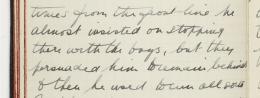 times from the goal line he
almost insisted on stopping
there with the boys, but they
persuaded him to remain behind
& then he used to run all sorts